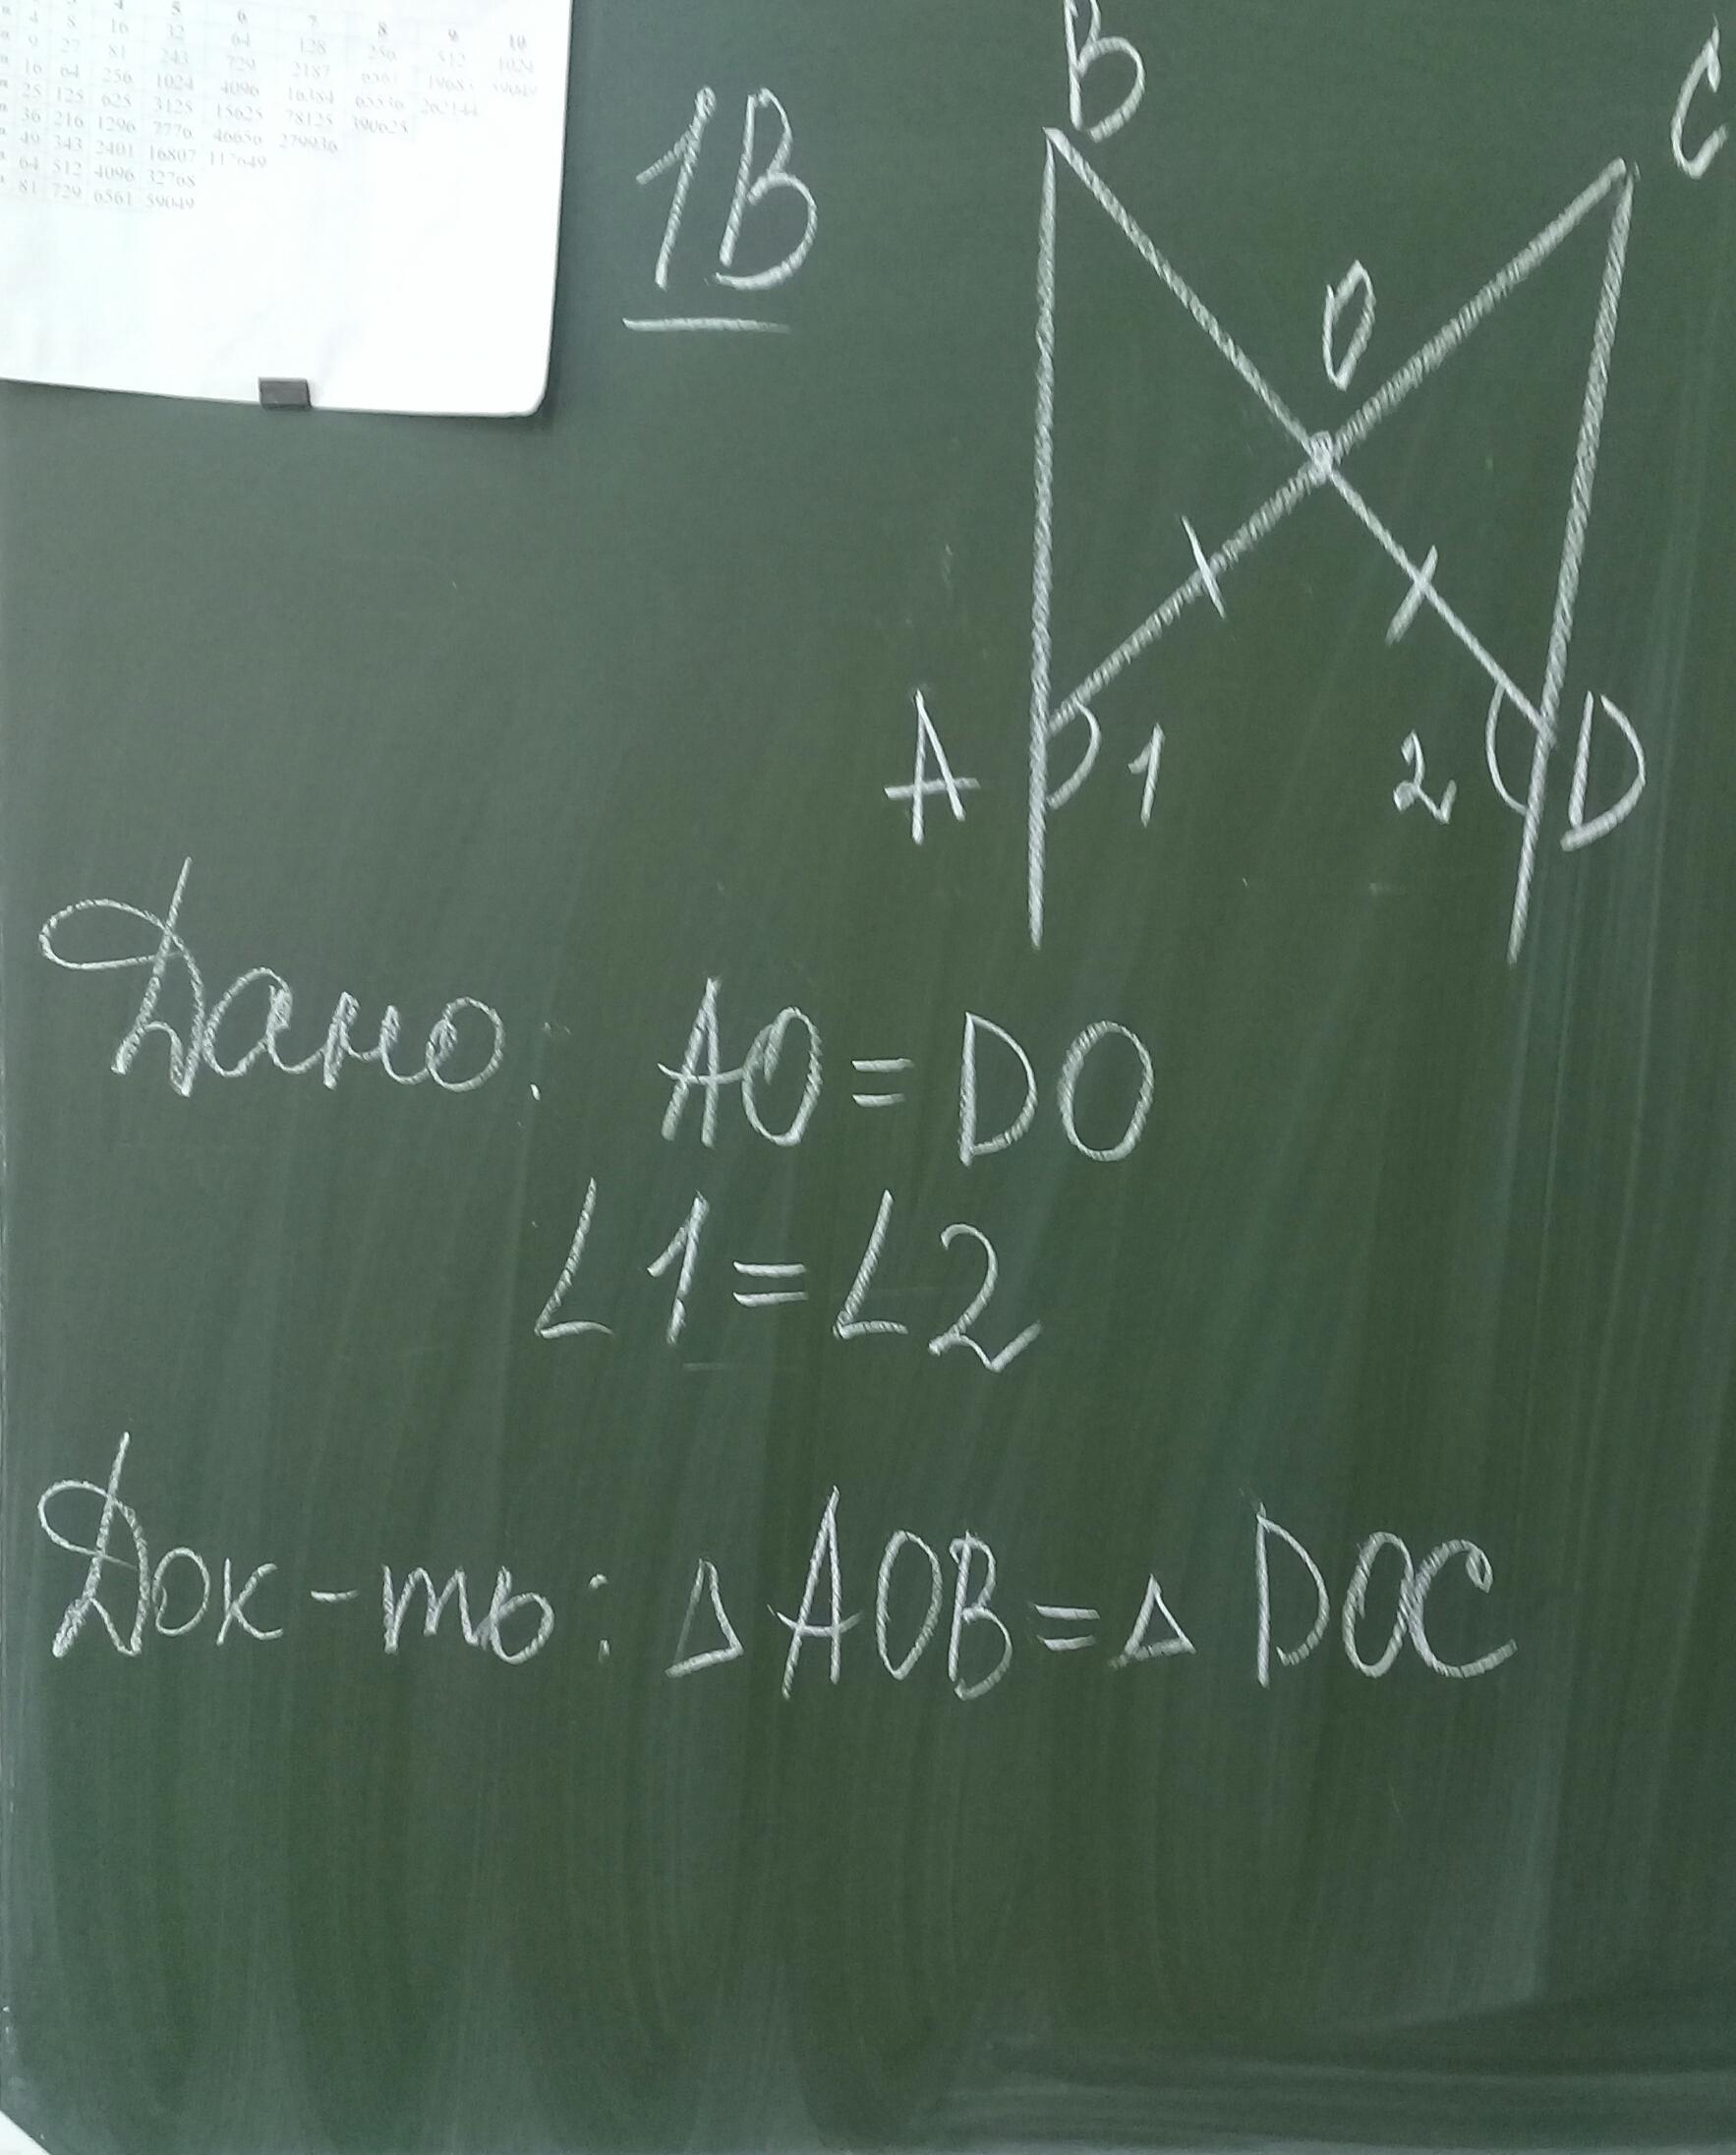 4 5 6 7 8 9 10
4 8 16 32 64 128 256 512 1024
9 27 81 243 729 2187 6561 19683 59049
16 64 256 1024 4096 16384 65536 262144
25 125 625 3125 15625 78125 390625
36 216 1296 7776 46656 279936
49 343 2401 16807 117649
64 512 4096 32768
81 729 6561 59049
1В
B
C
O
A
1
2
D
Дано: AO = DO
∠1 = ∠2
Док-ть: Δ AOB = Δ DOC